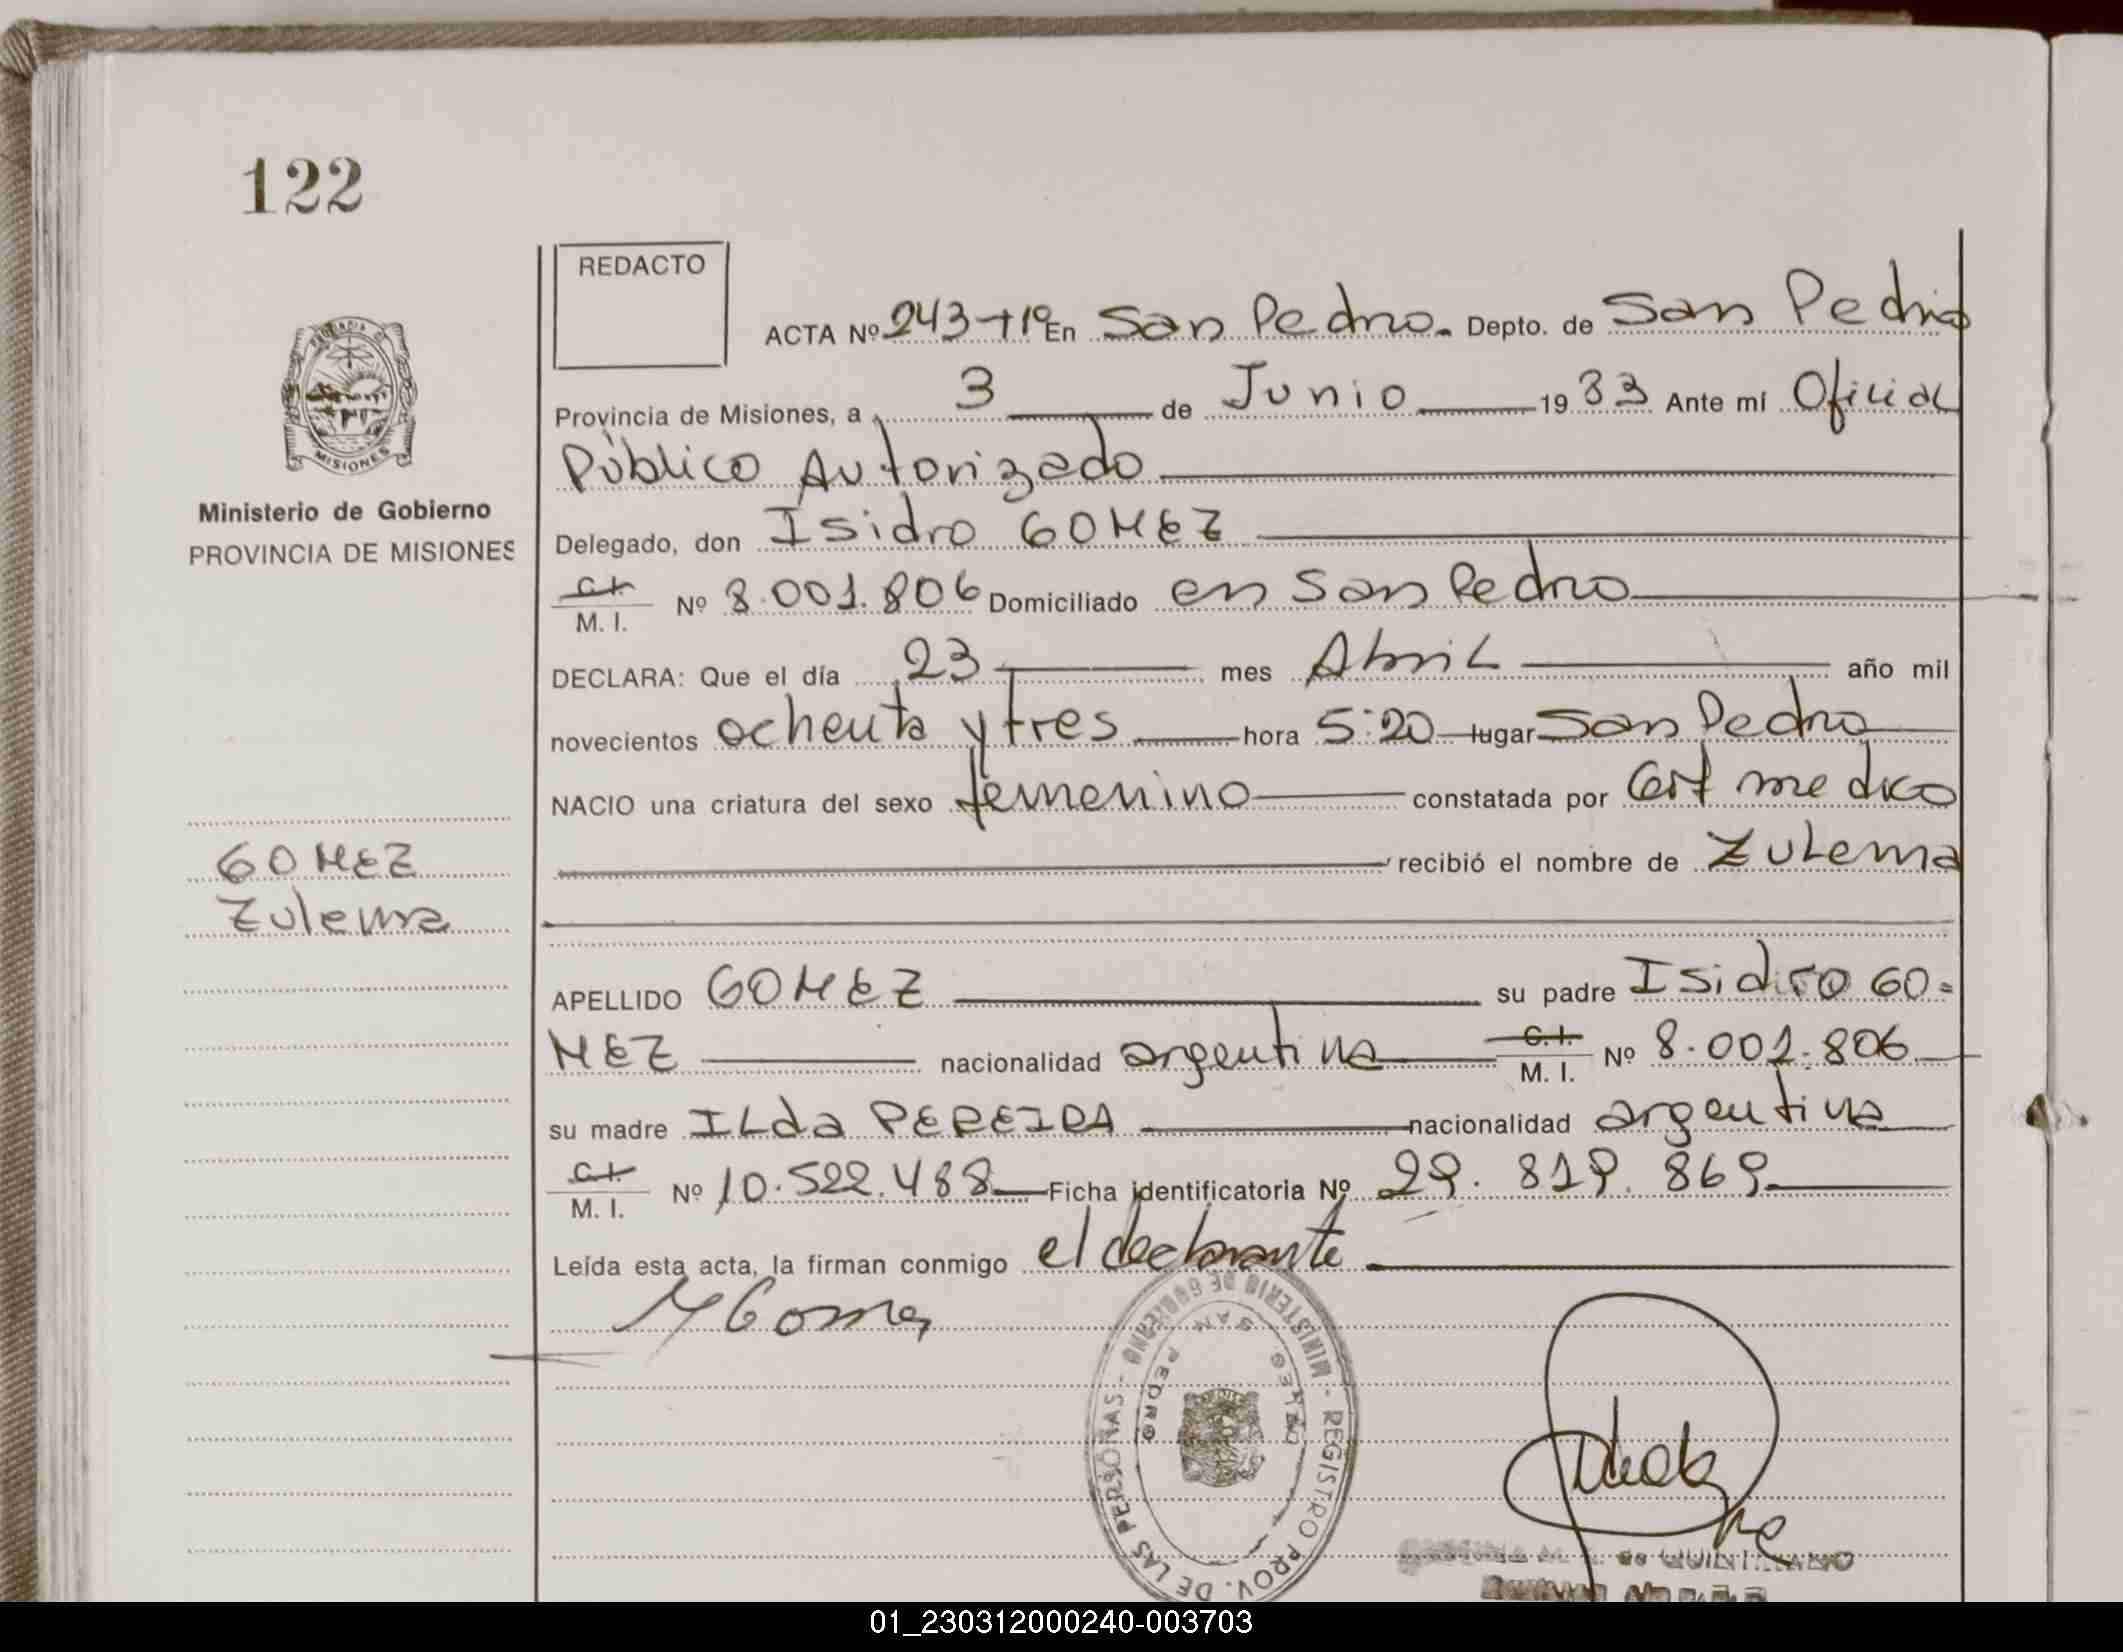 122
REDACTO
ACTA Nº 243-T1º En San Pedro. Depto. de San Pedro
Provincia de Misiones, a 3 de Junio 1983 Ante mí Oficial
Público Autorizado
Delegado, don Isidro GOMEZ
C.I. M. I. Nº 8.001.806 Domiciliado en San Pedro
DECLARA: Que el día 23 mes Abril año mil
novecientos ochenta y tres hora 5:20 lugar San Pedro
NACIO una criatura del sexo femenino constatada por Cert medico
recibió el nombre de Zulema
APELLIDO GOMEZ su padre Isidro GO=
MEZ nacionalidad argentina C.I. M. I. Nº 8.001.806
su madre ILda PEREIRA nacionalidad argentina
C.I. M. I. Nº 10.522.488 Ficha identificatoria Nº 29.819.869
Leída esta acta, la firman conmigo el declarante
Gomez
MISIONES
Ministerio de Gobierno
PROVINCIA DE MISIONES
GOMEZ
Zulema
REGISTRO PROV. DE LAS PERSONAS - MINISTERIO DE GOBIERNO -
SAN PEDRO
de QUINTANO
01_230312000240-003703